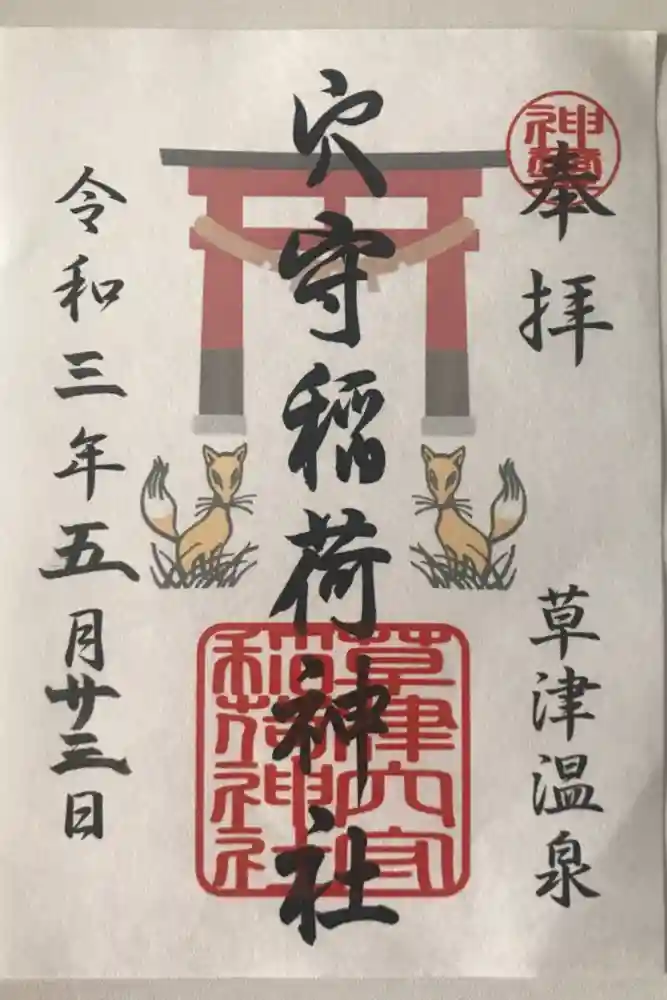 奉拝
草津温泉
穴守稲荷神社
草津穴守
稲荷神社
令和三年五月廿三日